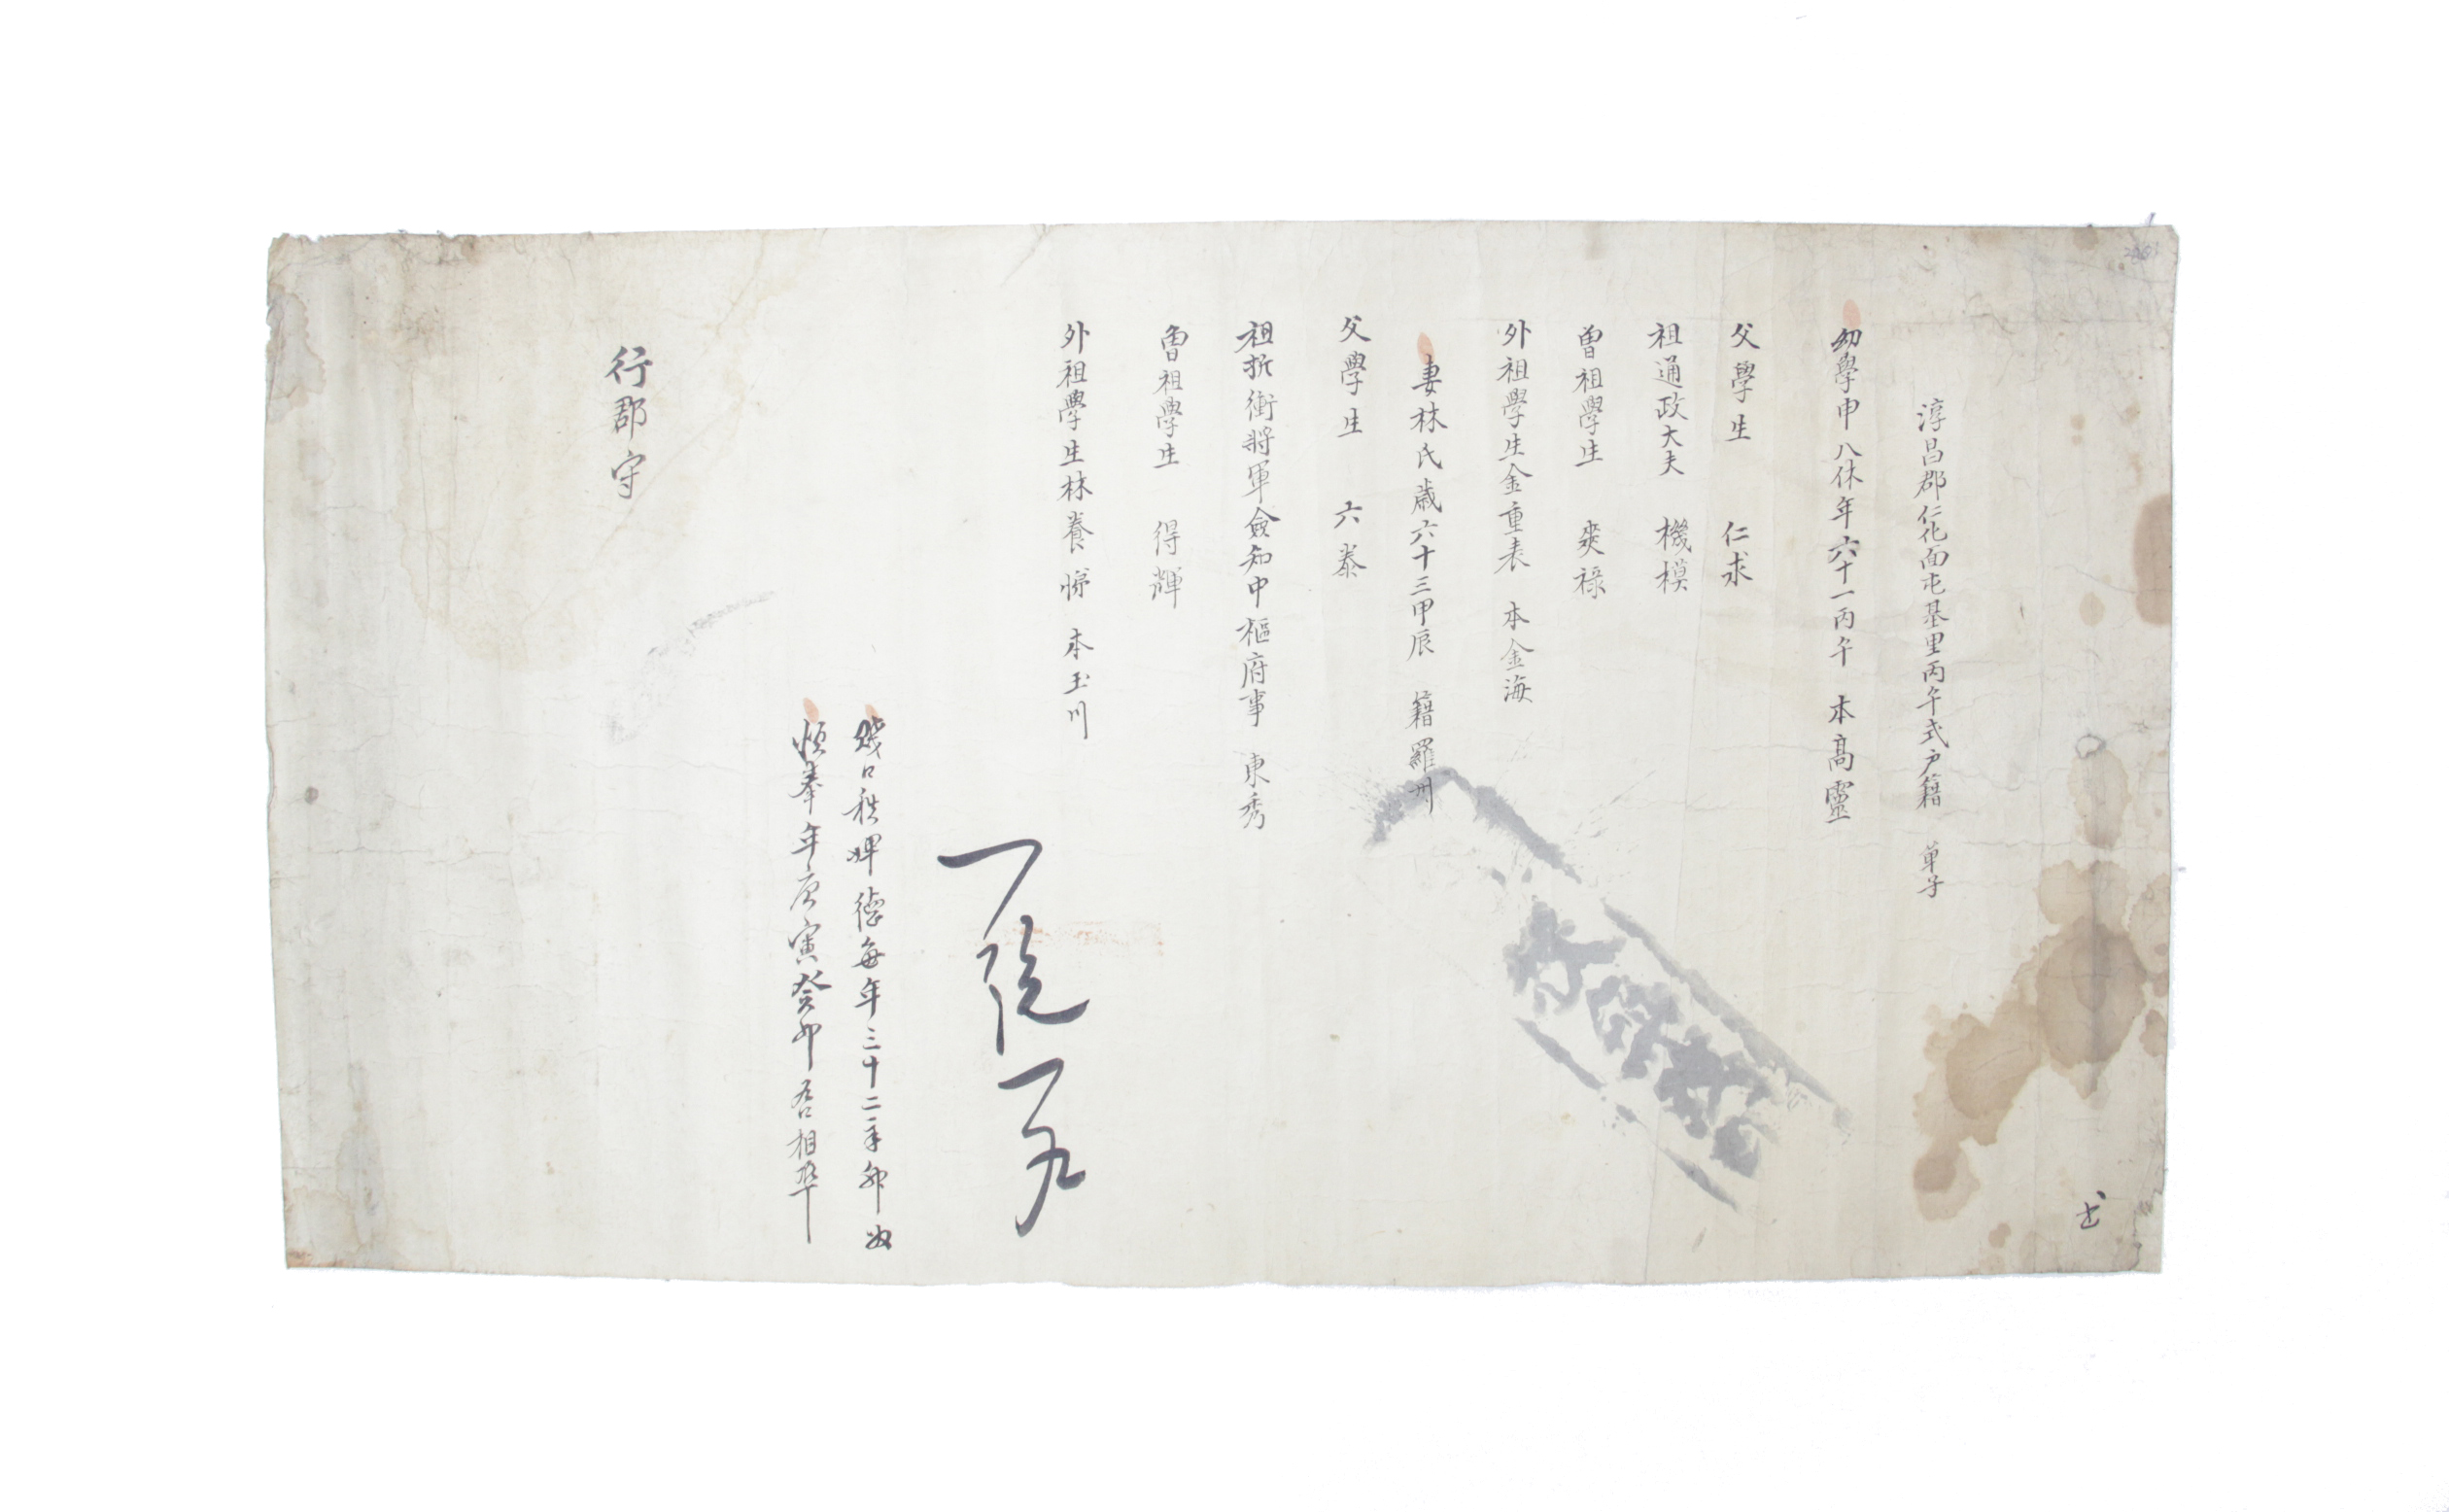 淳昌郡仁化面屯基里丙午式戶籍 單子
幼學申八休年六十一丙午 本高靈
父學生 仁求
祖通政大夫 機模
曽祖學生 奭祿
外祖學生金重表 本金海
妻林氏歲六十三甲辰 籍羅州
父學生 六泰
祖折衝將軍僉知中樞府事 東秀
曽祖學生 得輝
外祖學生林養 本玉川
賤口秩婢德每年三十二辛卯奴
順奉年庚寅癸卯 相準
行郡守